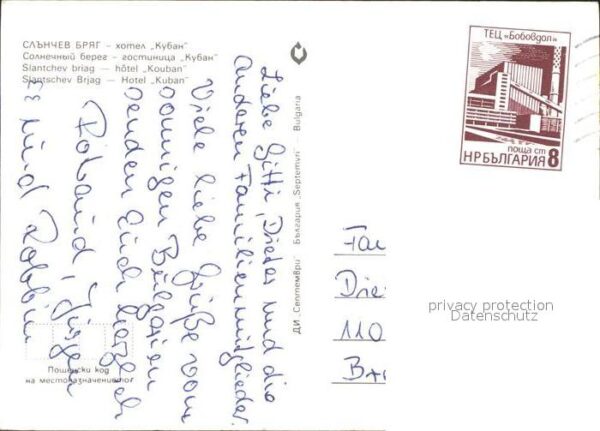 СЛЪНЧЕВ БРЯГ – хотел „Кубан"
Солнечный берег – гостиница „Кубан"
Slantchev briag — hôtel „Kouban"
Slantschev Brjag — Hotel „Kuban"
Liebe Gitti, Dieter und die
anderen Familienmitglieder.
Viele liebe Grüße vom
sonnigen Bulgarien
senden Euch herzlich
Roland, Jürgen
und Robbin
ДИ „Септември" България „Septemvri" Bulgaria
Пощенски код
на местоназначението
ТЕЦ „Бобовдол"
поща ст
НР БЪЛГАРИЯ 8
Fa
Die
110
privacy protection
Datenschutz